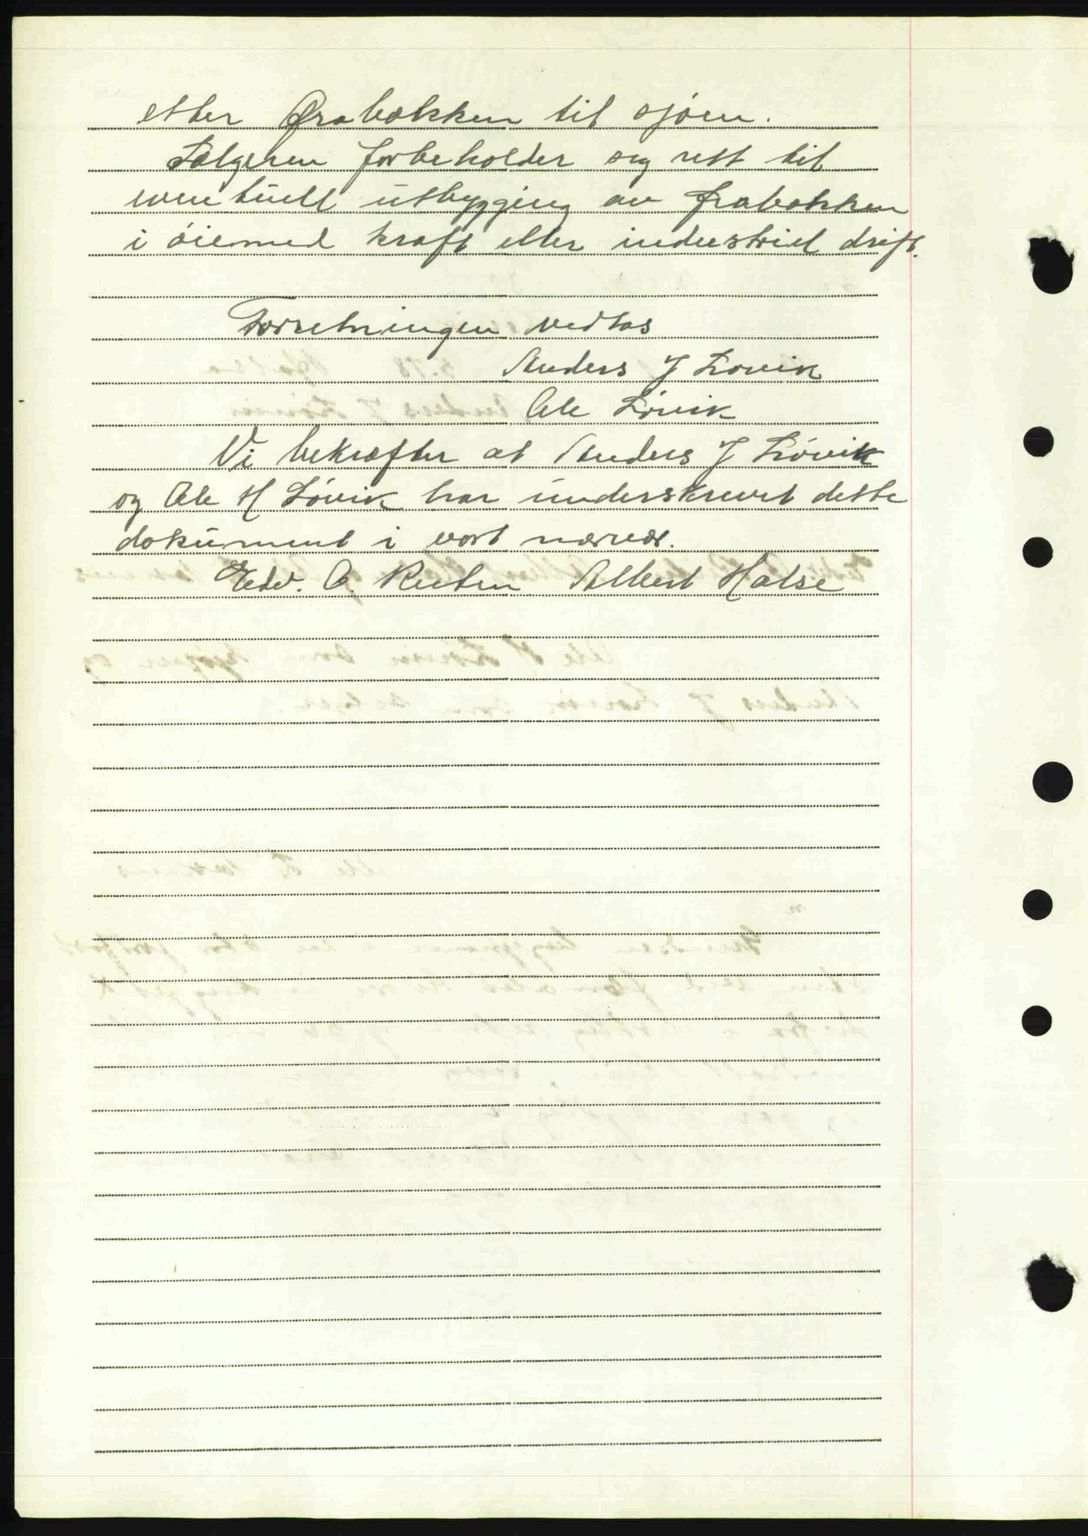 etter Ørabækken til sjøen.
Sælgeren forbeholder sig rett til
eventuell utbygging av Ørabækken
i øiemed kraft eller industriel drift.
Forretningen vedtas
Anders J Løvik
Ole Løvik
Vi bekræfter at Anders J Løvik
og Ole H Løvik har underskrevet dette
dokument i vort nærvær.
Edv. O. Halse